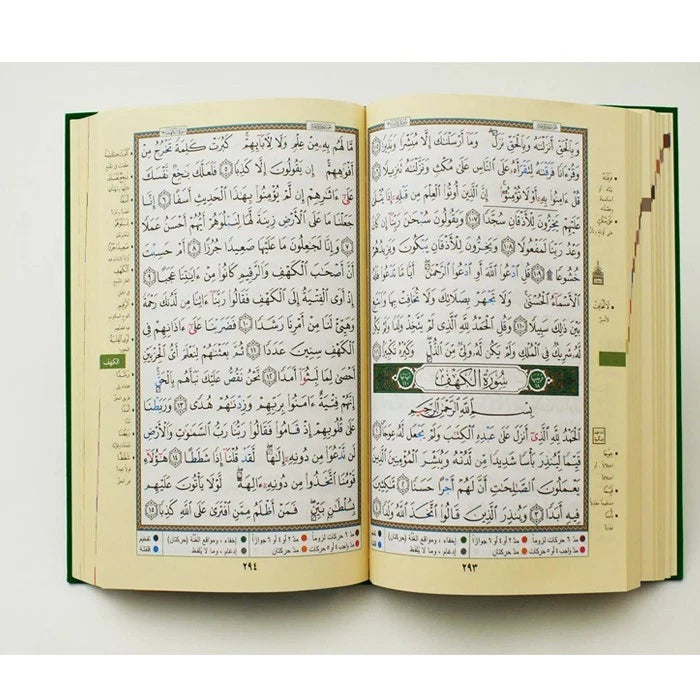 وَبِٱلْحَقِّ أَنزَلْنَٰهُ وَبِٱلْحَقِّ نَزَلَ ۗ وَمَآ أَرْسَلْنَٰكَ إِلَّا مُبَشِّرًا وَنَذِيرًا ١٠٥
وَقُرْءَانًا فَرَقْنَٰهُ لِتَقْرَأَهُۥ عَلَى ٱلنَّاسِ عَلَىٰ مُكْثٍ وَنَزَّلْنَٰهُ تَنزِيلًا ١٠٦
قُلْ ءَامِنُوا۟ بِهِۦٓ أَوْ لَا تُؤْمِنُوٓا۟ ۚ إِنَّ ٱلَّذِينَ أُوتُوا۟ ٱلْعِلْمَ مِن قَبْلِهِۦٓ إِذَا يُتْلَىٰ
عَلَيْهِمْ يَخِرُّونَ لِلْأَذْقَانِ سُجَّدًا ١٠٧ وَيَقُولُونَ سُبْحَٰنَ رَبِّنَآ إِن كَانَ
وَعْدُ رَبِّنَا لَمَفْعُولًا ١٠٨ وَيَخِرُّونَ لِلْأَذْقَانِ يَبْكُونَ وَيَزِيدُهُمْ
خُشُوعًا ۩ ١٠٩ قُلِ ٱدْعُوا۟ ٱللَّهَ أَوِ ٱدْعُوا۟ ٱلرَّحْمَٰنَ ۖ أَيًّا مَّا تَدْعُوا۟ فَلَهُ
ٱلْأَسْمَآءُ ٱلْحُسْنَىٰ ۚ وَلَا تَجْهَرْ بِصَلَاتِكَ وَلَا تُخَافِتْ بِهَا وَٱبْتَغِ
بَيْنَ ذَٰلِكَ سَبِيلًا ١١٠ وَقُلِ ٱلْحَمْدُ لِلَّهِ ٱلَّذِى لَمْ يَتَّخِذْ وَلَدًا وَلَمْ يَكُن
لَّهُۥ شَرِيكٌ فِى ٱلْمُلْكِ وَلَمْ يَكُن لَّهُۥ وَلِىٌّ مِّنَ ٱلذُّلِّ ۖ وَكَبِّرْهُ تَكْبِيرًۢا ١١١
سُورَةُ الكَهْفِ
بِسْمِ ٱللَّهِ ٱلرَّحْمَٰنِ ٱلرَّحِيمِ
ٱلْحَمْدُ لِلَّهِ ٱلَّذِىٓ أَنزَلَ عَلَىٰ عَبْدِهِ ٱلْكِتَٰبَ وَلَمْ يَجْعَل لَّهُۥ عِوَجَا ۜ ١
قَيِّمًا لِّيُنذِرَ بَأْسًا شَدِيدًا مِّن لَّدُنْهُ وَيُبَشِّرَ ٱلْمُؤْمِنِينَ ٱلَّذِينَ
يَعْمَلُونَ ٱلصَّٰلِحَٰتِ أَنَّ لَهُمْ أَجْرًا حَسَنًا ٢ مَّٰكِثِينَ
فِيهِ أَبَدًا ٣ وَيُنذِرَ ٱلَّذِينَ قَالُوا۟ ٱتَّخَذَ ٱللَّهُ وَلَدًا ٤
مدّ ٦ حركات لزوماً
مدّ ٢ أو ٤ أو ٦ جوازاً
إخفاء، ومواقع الغُنَّة (حركتان)
تفخيم
مدّ واجب ٤ أو ٥ حركات
مدّ حركتان
إدغام، وما لا يُلفَظ
قلقلة
٢٩٣
مَّا لَهُم بِهِۦ مِنْ عِلْمٍ وَلَا لِءَابَآئِهِمْ ۚ كَبُرَتْ كَلِمَةً تَخْرُجُ مِنْ
أَفْوَٰهِهِمْ ۚ إِن يَقُولُونَ إِلَّا كَذِبًا ٥ فَلَعَلَّكَ بَٰخِعٌ نَّفْسَكَ
عَلَىٰٓ ءَاثَٰرِهِمْ إِن لَّمْ يُؤْمِنُوا۟ بِهَٰذَا ٱلْحَدِيثِ أَسَفًا ٦ إِنَّا
جَعَلْنَا مَا عَلَى ٱلْأَرْضِ زِينَةً لَّهَا لِنَبْلُوَهُمْ أَيُّهُمْ أَحْسَنُ عَمَلًا
٧ وَإِنَّا لَجَٰعِلُونَ مَا عَلَيْهَا صَعِيدًا جُرُزًا ٨ أَمْ حَسِبْتَ
أَنَّ أَصْحَٰبَ ٱلْكَهْفِ وَٱلرَّقِيمِ كَانُوا۟ مِنْ ءَايَٰتِنَا عَجَبًا ٩
إِذْ أَوَى ٱلْفِتْيَةُ إِلَى ٱلْكَهْفِ فَقَالُوا۟ رَبَّنَآ ءَاتِنَا مِن لَّدُنكَ رَحْمَةً
وَهَيِّئْ لَنَا مِنْ أَمْرِنَا رَشَدًا ١٠ فَضَرَبْنَا عَلَىٰٓ ءَاذَانِهِمْ فِى
ٱلْكَهْفِ سِنِينَ عَدَدًا ١١ ثُمَّ بَعَثْنَٰهُمْ لِنَعْلَمَ أَىُّ ٱلْحِزْبَيْنِ
أَحْصَىٰ لِمَا لَبِثُوٓا۟ أَمَدًا ١٢ نَّحْنُ نَقُصُّ عَلَيْكَ نَبَأَهُم بِٱلْحَقِّ ۚ
إِنَّهُمْ فِتْيَةٌ ءَامَنُوا۟ بِرَبِّهِمْ وَزِدْنَٰهُمْ هُدًى ١٣ وَرَبَطْنَا
عَلَىٰ قُلُوبِهِمْ إِذْ قَامُوا۟ فَقَالُوا۟ رَبُّنَا رَبُّ ٱلسَّمَٰوَٰتِ وَٱلْأَرْضِ
لَن نَّدْعُوَا۟ مِن دُونِهِۦٓ إِلَٰهًا ۖ لَّقَدْ قُلْنَآ إِذًا شَطَطًا ١٤ هَٰٓؤُلَآءِ
قَوْمُنَا ٱتَّخَذُوا۟ مِن دُونِهِۦٓ ءَالِهَةً ۖ لَّوْلَا يَأْتُونَ عَلَيْهِم
بِسُلْطَٰنٍۭ بَيِّنٍ ۖ فَمَنْ أَظْلَمُ مِمَّنِ ٱفْتَرَىٰ عَلَى ٱللَّهِ كَذِبًا ١٥
الكهف
مدّ ٦ حركات لزوماً
مدّ ٢ أو ٤ أو ٦ جوازاً
إخفاء، ومواقع الغُنَّة (حركتان)
تفخيم
مدّ واجب ٤ أو ٥ حركات
مدّ حركتان
إدغام، وما لا يُلفَظ
قلقلة
٢٩٤